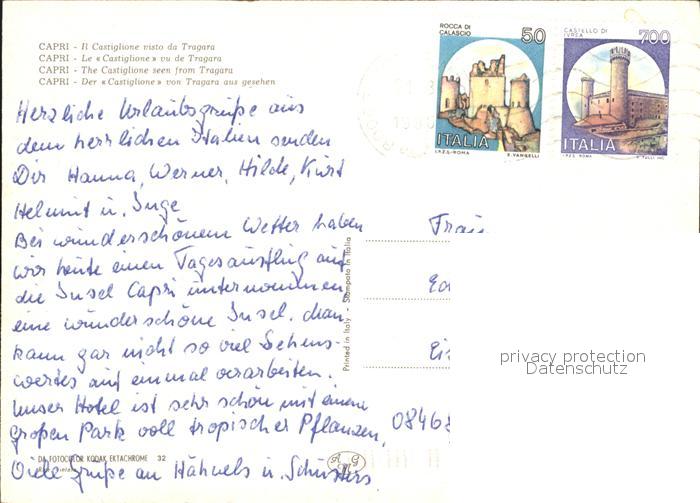 CAPRI - Il Castiglione visto da Tragara
CAPRI - Le « Castiglione » vu de Tragara
CAPRI - The Castiglione seen from Tragara
CAPRI - Der « Castiglione » von Tragara aus gesehen
ROCCA DI CALASCIO 50
ITALIA
I.P.Z.S. - ROMA E. VANGELLI
CASTELLO DI IVREA 700
ITALIA
I.P.Z.S. ROMA
Herzliche Urlaubsgrüße aus
dem herrlichen Italien senden
Dir Hanna, Werner, Hilde, Kurt
Helmut u. Inge
Bei wunderschönem Wetter haben
wir heute einen Tagesausflug auf
die Insel Capri unternommen
eine wunderschöne Insel. Man
kann gar nicht so viel Sehens-
wertes auf einmal verarbeiten.
Unser Hotel ist sehr schön mit einem
großen Park voll tropischer Pflanzen,
Viele Grüße an Hähnels u. Schusters
Frau
Ed
Eis
08468
Printed in Italy - Stampato in Italia
DA FOTOCOLOR KODAK EKTACHROME 32
privacy protection
Datenschutz